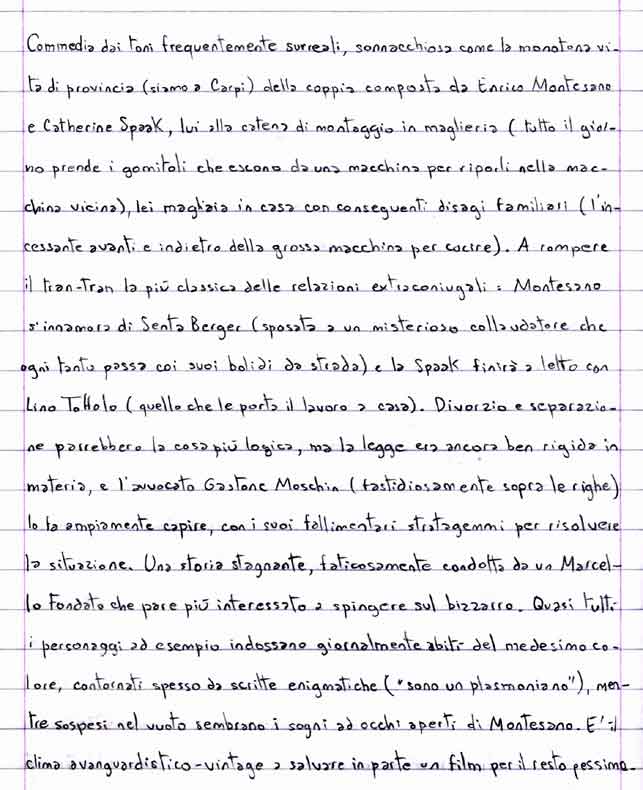 Commedia dai toni frequentemente surreali, sonnacchiosa come la monotona vi-
ta di provincia (siamo a Carpi) della coppia composta da Enrico Montesano
e Catherine Spaak, lui alla catena di montaggio in maglieria (tutto il gior-
no prende i gomitoli che escono da una macchina per riporli nella mac-
china vicina), lei magliaia in casa con conseguenti disagi familiari (l'in-
cessante avanti e indietro della grossa macchina per cucire). A rompere
il tran-tran la più classica delle relazioni extraconiugali: Montesano
s'innamora di Senta Berger (sposata a un misterioso collaudatore che
ogni tanto passa coi suoi bolidi da strada) e la Spaak finirà a letto con
Lino Toffolo (quello che le porta il lavoro a casa). Divorzio e separazio-
ne parrebbero la cosa più logica, ma la legge era ancora ben rigida in
materia, e l'avvocato Gastone Moschin (fastidiosamente sopra le righe)
lo fa ampiamente capire, con i suoi fallimentari stratagemmi per risolvere
la situazione. Una storia stagnante, faticosamente condotta da un Marcel-
lo Fondato che pare più interessato a spingere sul bizzarro. Quasi tutti
i personaggi ad esempio indossano giornalmente abiti del medesimo co-
lore, contornati spesso da scritte enigmatiche ("sono un plasmoniano"), men-
tre sospesi nel vuoto sembrano i sogni ad occhi aperti di Montesano. E' il
clima avanguardistico-vintage a salvare in parte un film per il resto pessimo.